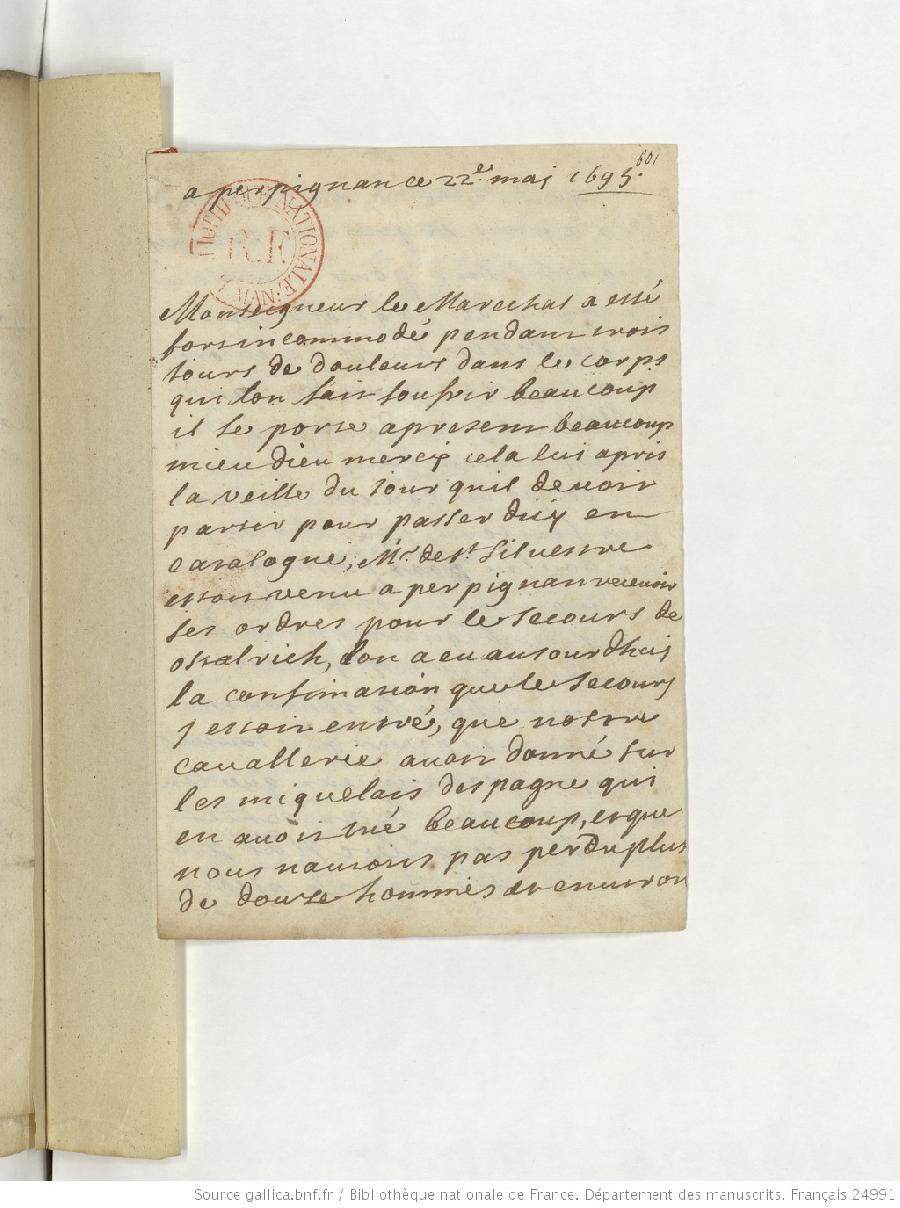 601
a perpignan ce 22e. mai 1695.
BIBLIOTHEQUE NATIONALE MAN
R.F.
Monseigneur le Marechal a esté
fort incommodé pendant trois
jours de douleurs dans le corps
qui lon fait soufrir beaucoup
il se porte apresent beaucoup
mieu dieu mercy cela lui apris
la veille du jour quil devoit
partir pour passer dicy en
Catalogne, Mr. de St Silvestre
estoit venu a perpignan recevoir
ses ordres pour le secours de
ostalrich, lon a eu aujourdhuy
la confirmation que le secours
y estoit entré, que nostre
cavallerie avoit donné sur
les miquelais despagne qui
en avoit tué beaucoup, et que
nous navions pas perdu plus
de douze hommes et environ
Source gallica.bnf.fr / Bibliothèque nationale de France. Département des manuscrits. Français 24991